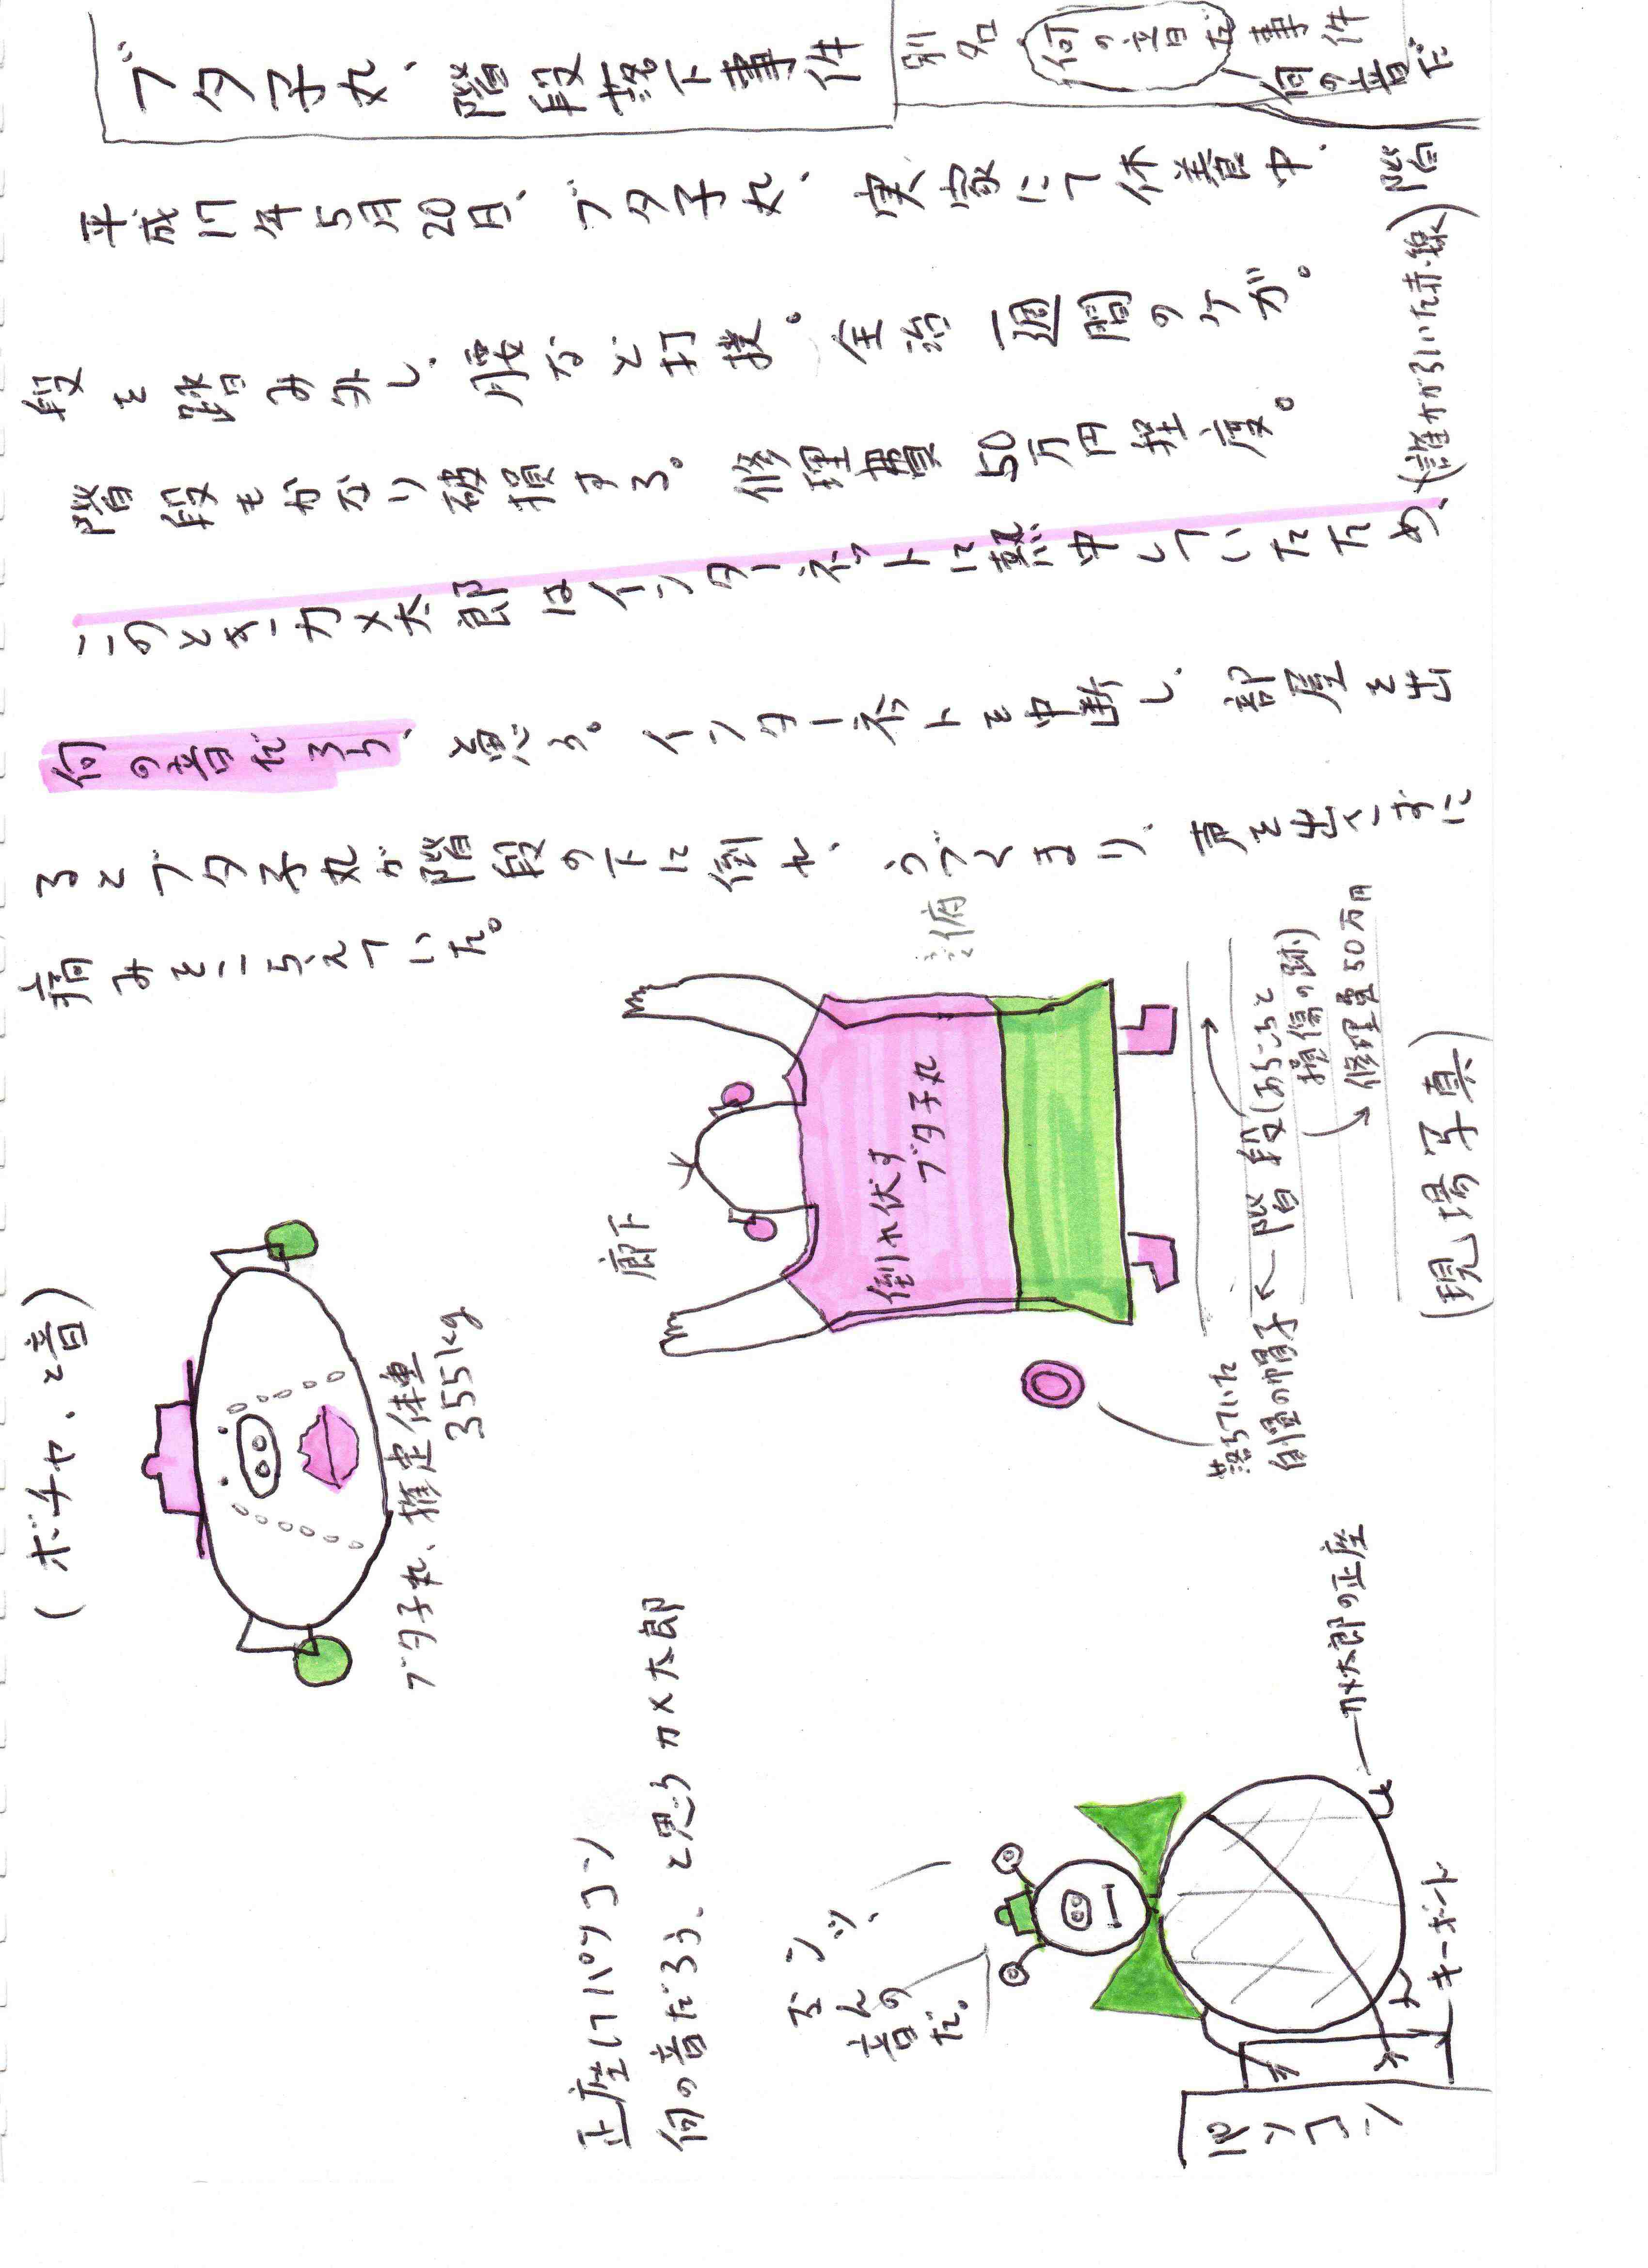 ブタ子丸、階段落下事件
別名 何の音だ事件
何の音だ
平成17年5月20日、ブタ子丸、実家にて休養中、階
段を踏み外し、腰など打撲。全治一週間のケガ。
階段もかなり破損する。修理費50万円程度。
このときカメ太郎はインターネットに熱中していたため、(誰かが引いた赤線)
何の音だろう、と思う。インターネットを中断し、部屋を出
るとブタ子丸が階段の下に倒れ、うづくまり、声を出くずに
痛みをこらえていた。
(ボチャ、と音)
ブタ子丸、推定体重
355kg
廊下
倒れ伏す
ブタ子丸
階段(あちこちと
損傷の跡)
修理費50万円
落ちていた
自畳の帽子
(現場写真)
正座してパソコン
何の音だろう、と思うカメ太郎
なんの
音
だ。
カメ太郎の正座
キーボード
パソコン